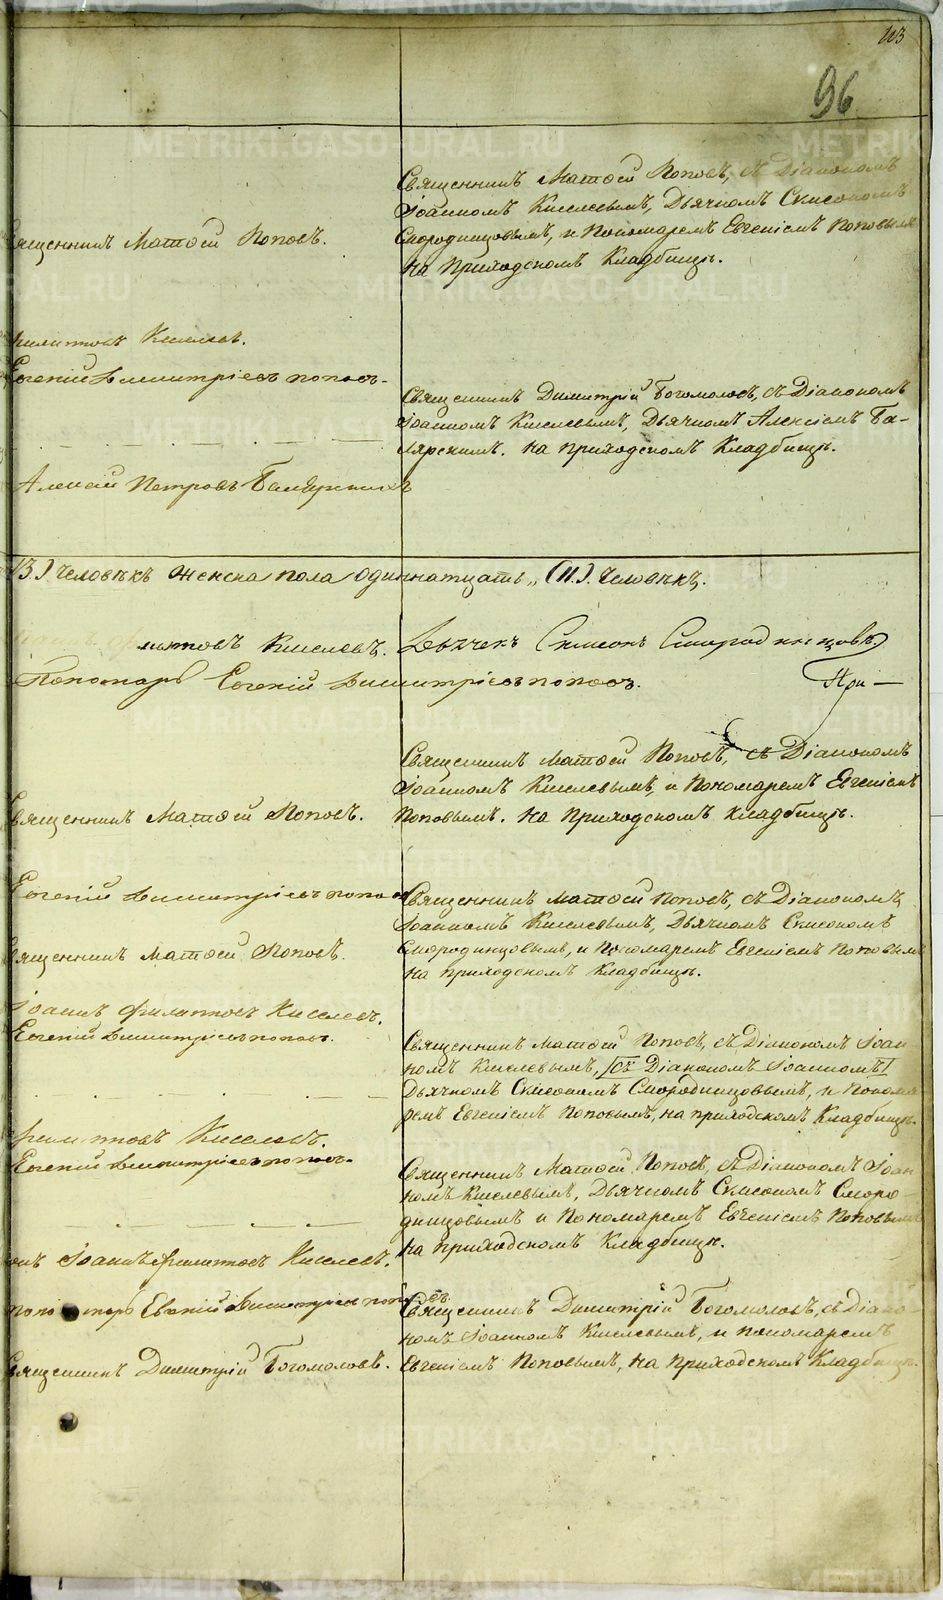 113
96
Священникъ Матѳей Поповъ, съ Діакономъ
Іоанномъ Киселевымъ, Дьячкомъ Симеономъ
Смородинцовымъ, и Пономаремъ Евгеніемъ Поповымъ
на Приходскомъ Кладбищѣ.
Священникъ Матѳей Поповъ.
Филиповъ Киселевъ.
Евгеній Димитріевъ Поповъ.
Священникъ Димитрій Богомоловъ, съ Діакономъ
Іоанномъ Киселевымъ, Дьячкомъ Алексіемъ Ба-
лярскимъ. на приходскомъ Кладбищѣ.
Алексей Петровъ
(3.) человѣкъ женска пола одиннатцать „ (11). Человѣкъ.
Филитовъ Киселевъ. Дьячекъ Симеонъ Смородинцовъ.
Пономарь Евгеній Димитріевъ Поповъ.
При —
Священникъ Матѳей Поповъ, съ Діакономъ
Іоанномъ Киселевымъ, и Пономаремъ Евгеніемъ
Поповымъ. на Приходскомъ Кладбищѣ.
Священникъ Матѳей Поповъ.
Евгеній Димитріевъ Поповъ
Священникъ Матѳей Поповъ, съ Діакономъ
Іоанномъ Киселевымъ, Дьячкомъ Симеономъ
Смородинцовымъ, и Пономаремъ Евгеніемъ Поповымъ
на приходскомъ Кладбищѣ.
Священникъ Матѳей Поповъ.
Іоаннъ Филитовъ Киселевъ.
Евгеній Димитріевъ Поповъ.
Священникъ Матѳей Поповъ, съ Діакономъ Іоан-
номъ Киселевымъ, /съ Діакономъ Іоанномъ/
Дьячкомъ Симеономъ Смородинцовымъ, и Понома-
ремъ Евгеніемъ Поповымъ, на приходскомъ Кладбищѣ.
Филитовъ Киселевъ.
Евгеній Димитріевъ Поповъ.
Священникъ Матѳей Поповъ, съ Діакономъ Іоан-
номъ Киселевымъ, Дьячкомъ Симеономъ Сморо-
динцовымъ и Пономаремъ Евгеніемъ Поповымъ
на приходскомъ Кладбищѣ.
Іоаннъ Филитовъ Киселевъ.
Пономарь Евгеній Димитріевъ Поповъ
Священникъ Димитрій Богомоловъ, съ Діако-
номъ Іоанномъ Киселевымъ, и пономаремъ
Евгеніемъ Поповымъ, на приходскомъ Кладбищѣ.
Священникъ Димитрій Богомоловъ.
METRIKI.GASO-URAL.RU